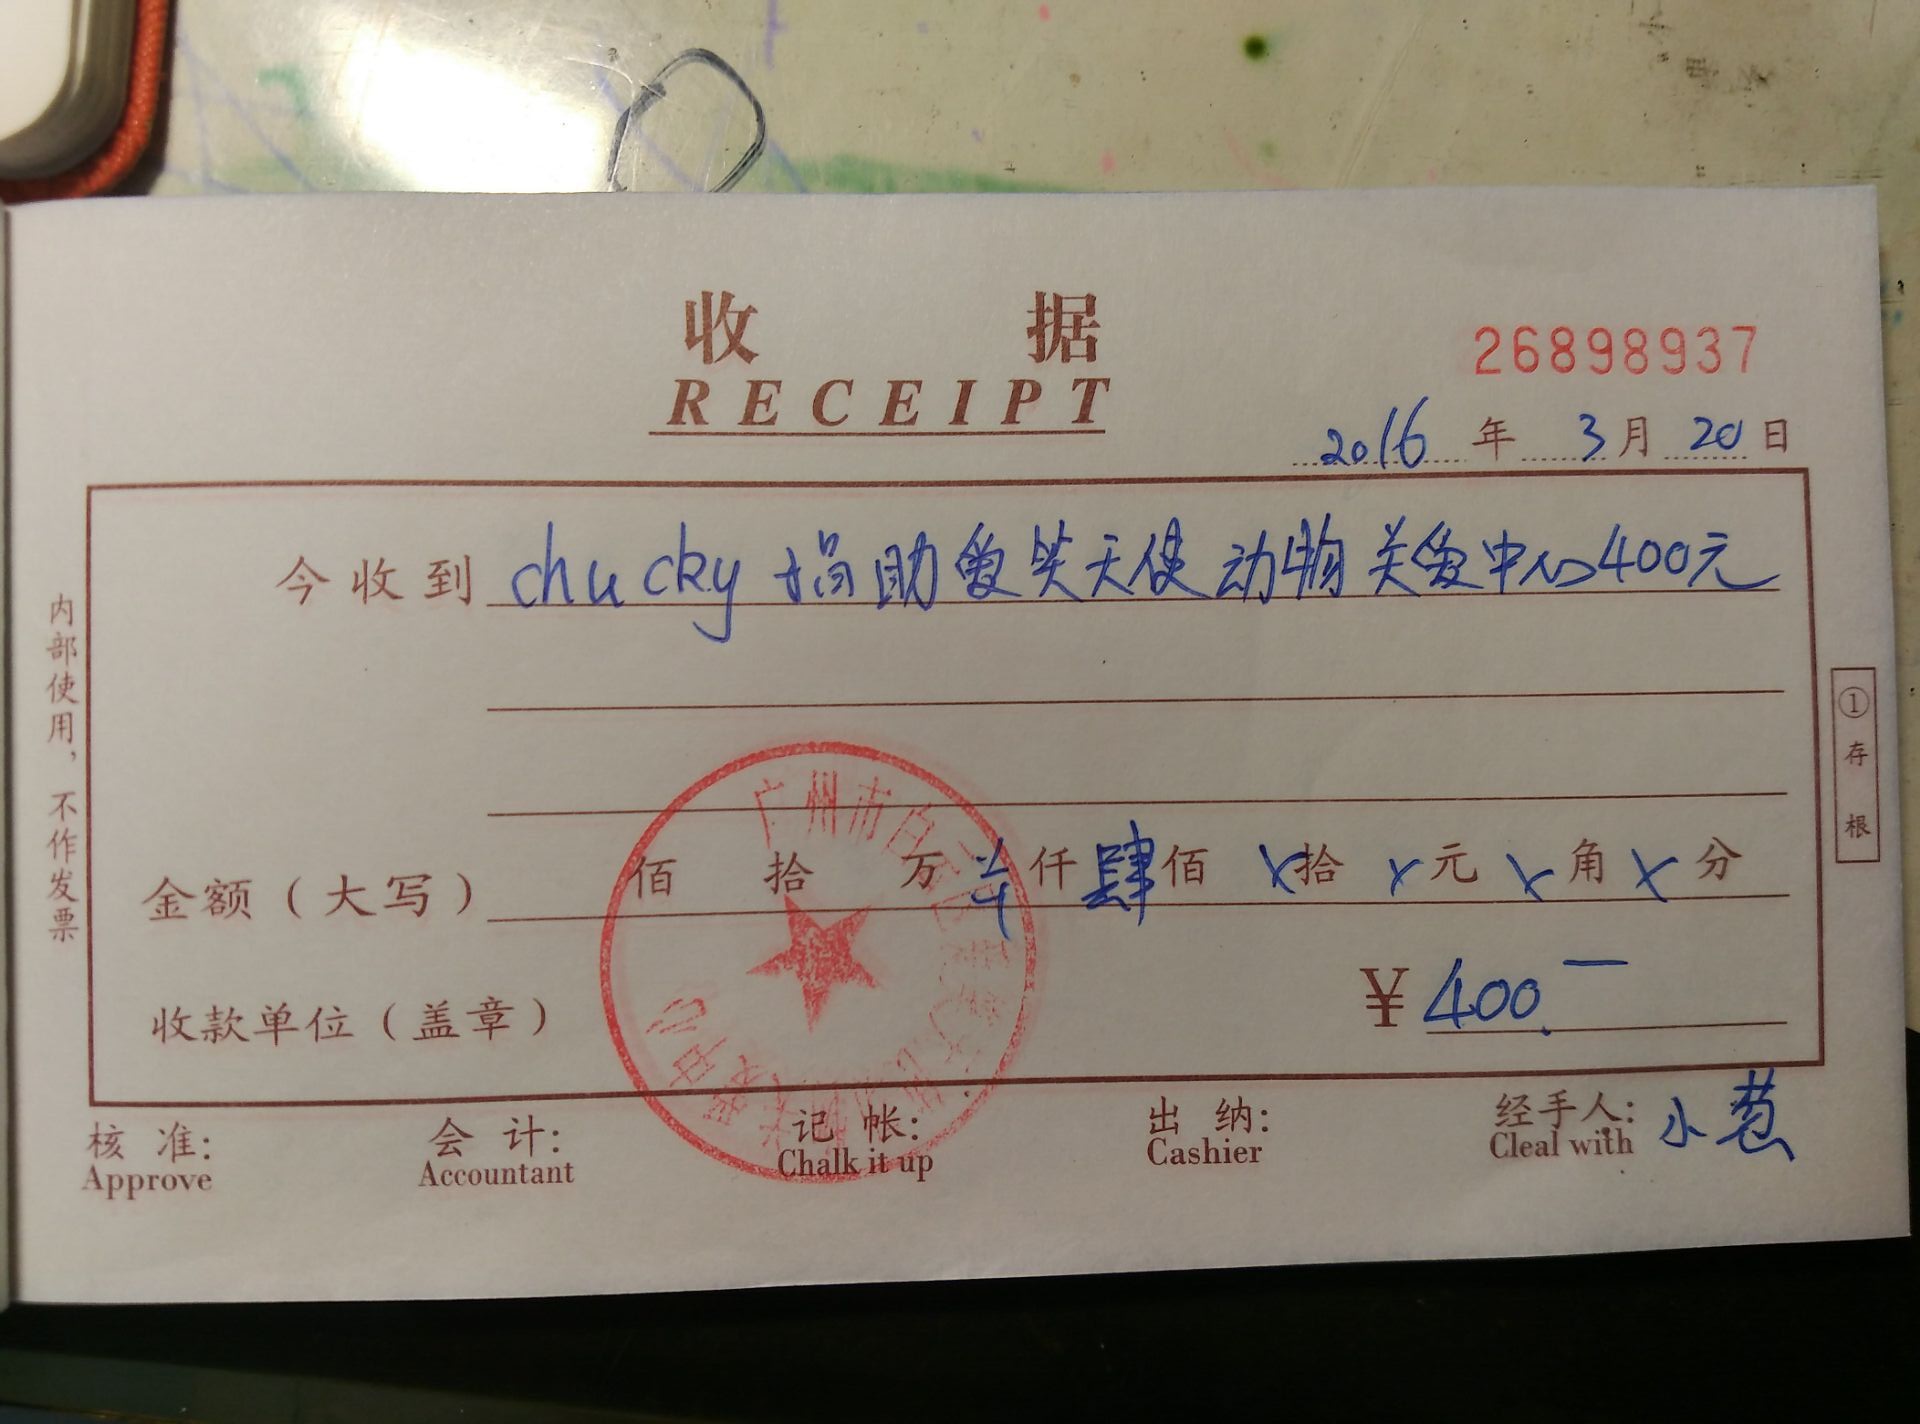 收据
RECEIPT
26898937
2016年3月20日
今收到 chucky 捐助爱笑天使动物关爱中心400元
金额(大写) 佰 拾 万 仟肆佰 x拾 x元 x角 x分
收款单位(盖章) ¥400.一
核准: 会计: 记帐: 出纳: 经手人: 小葱
Approve Accountant Chalk it up Cashier Cleal with
内部使用，不作发票
①存根
广州市白云
中心